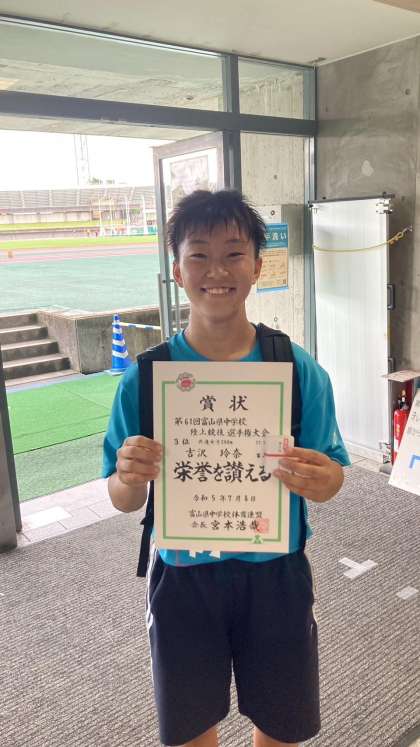 賞状
第61回富山県中学校
陸上競技選手権大会
3位
吉沢 玲奈
栄誉を讃える
令和5年7月8日
富山県中学校体育連盟
会長 宮本浩哉
手洗い